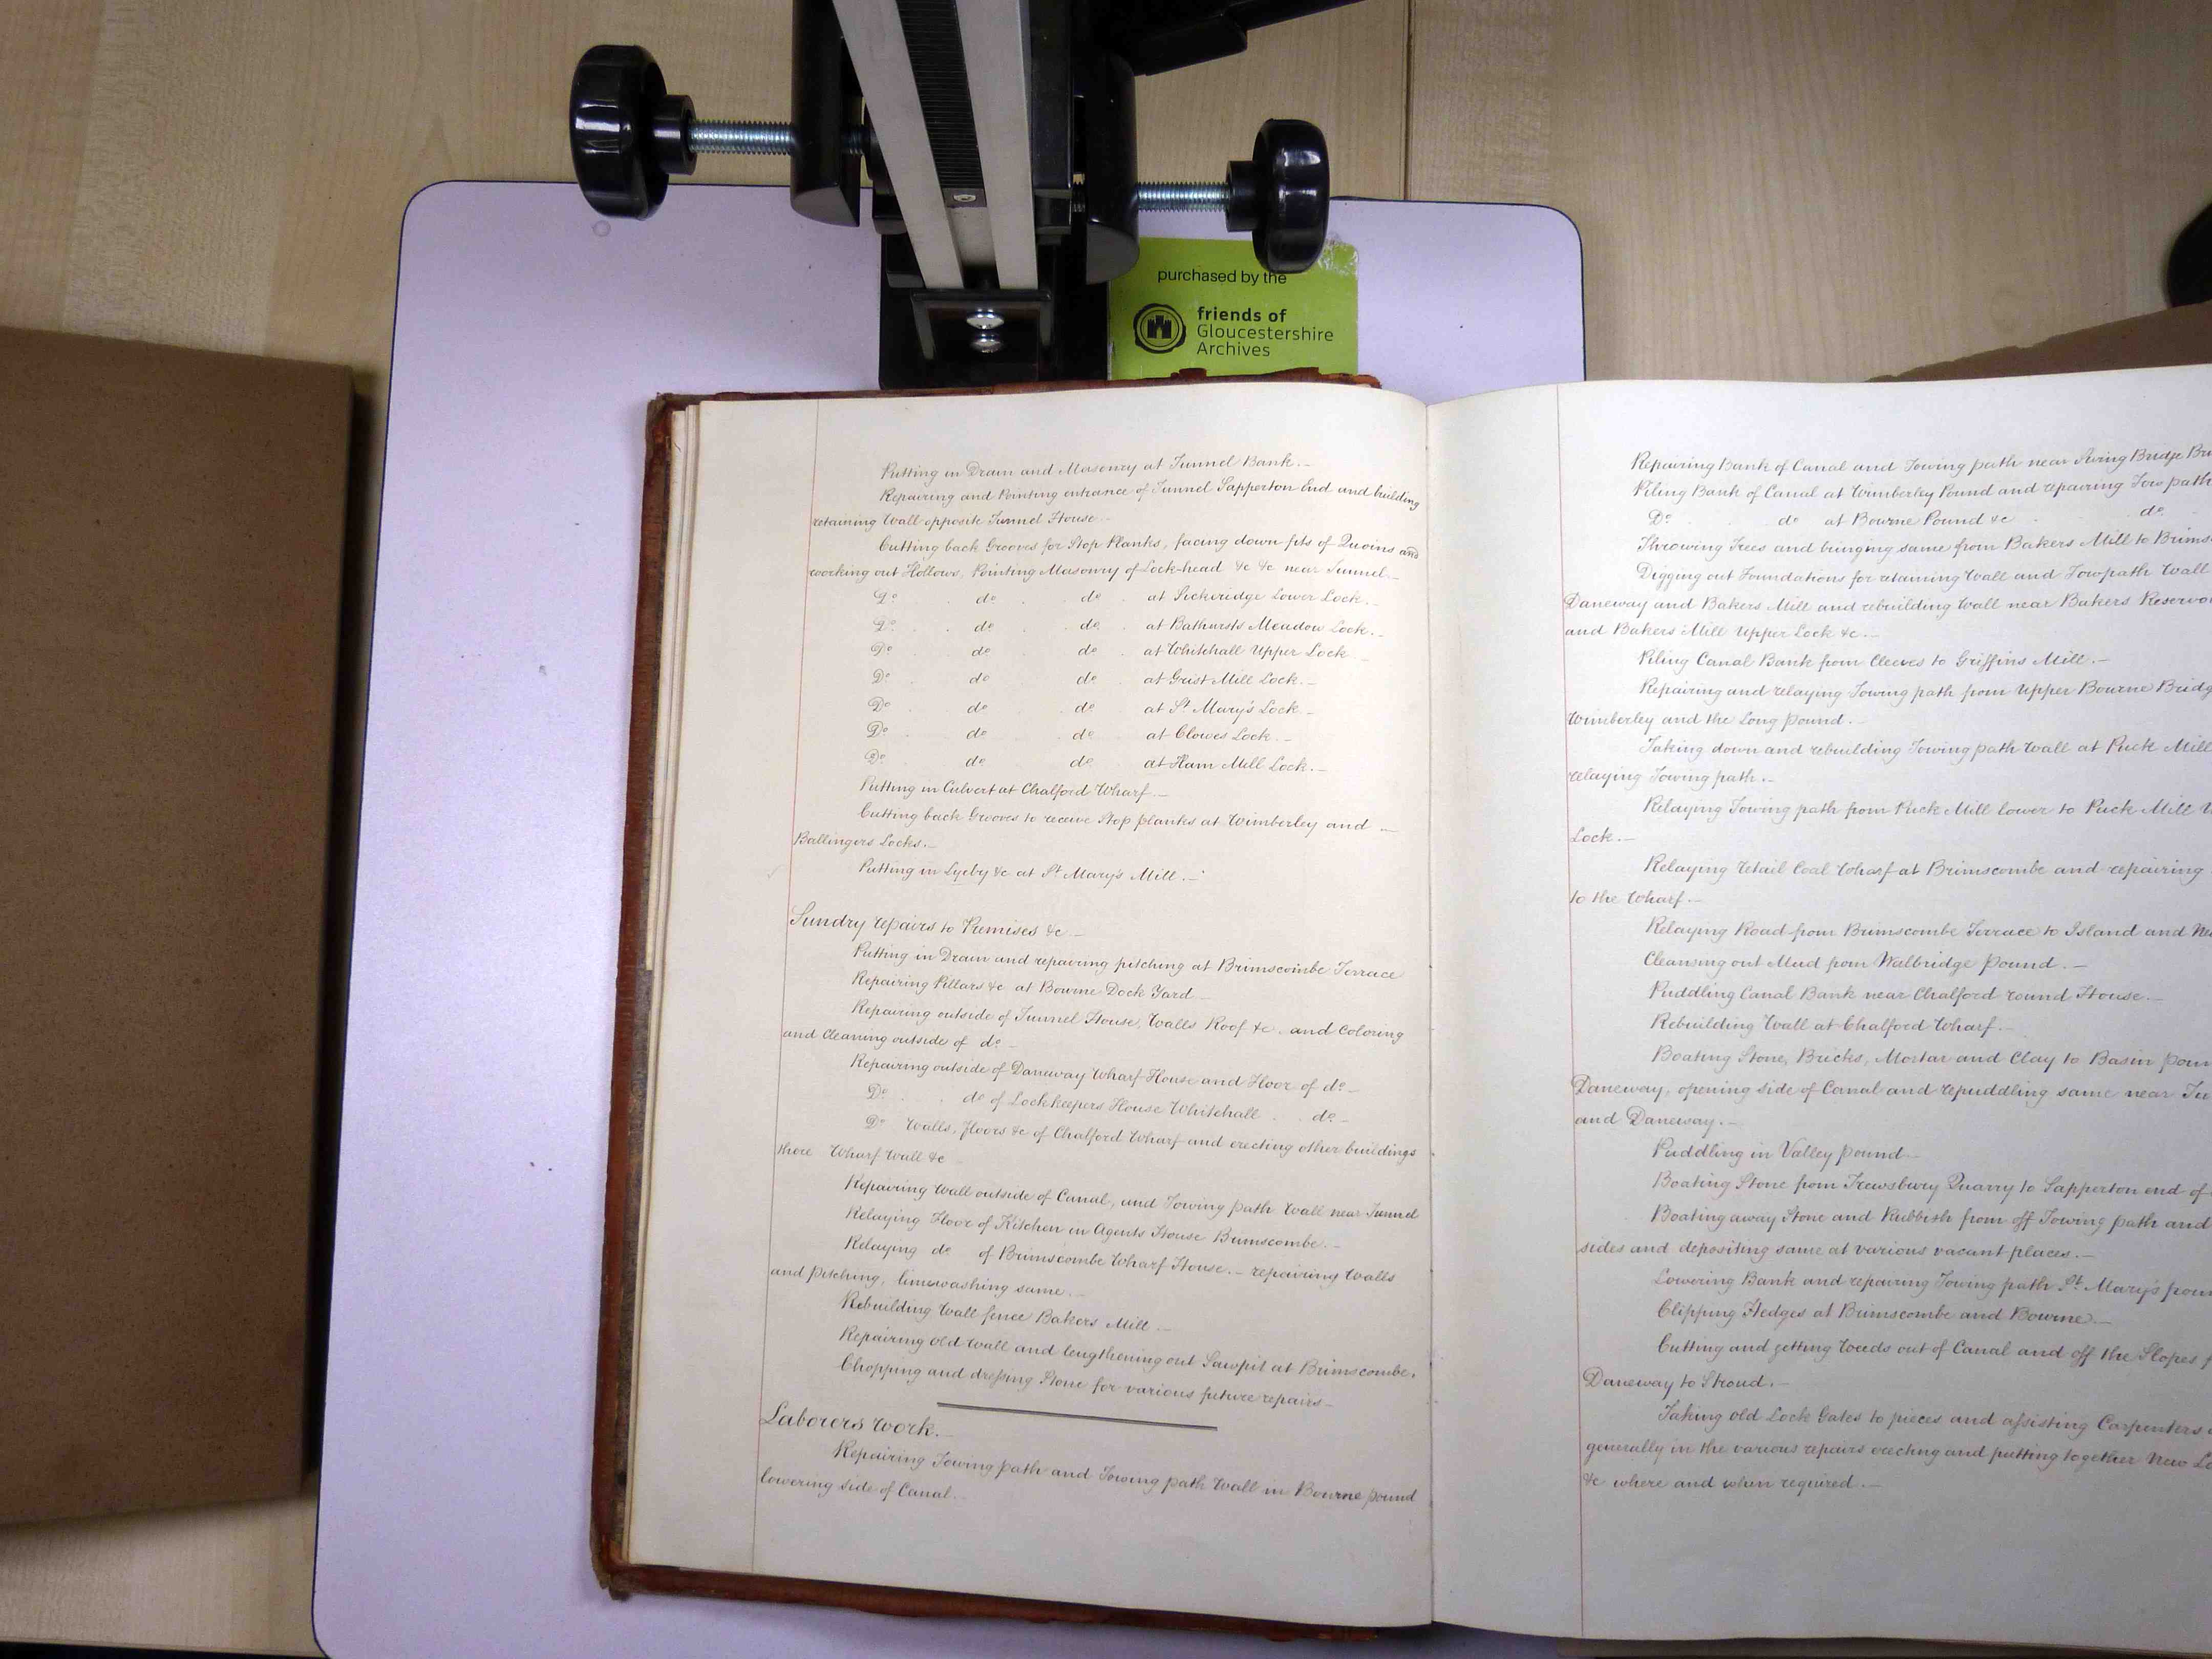 purchased by the
friends of
Gloucestershire
Archives
Putting in Drain and Masonry at Tunnel Bank.—
Repairing and Pointing entrance of Tunnel Sapperton End and building
retaining Wall opposite Tunnel House.
Cutting back Grooves for Stop Planks, facing down fits of Quoins and
working out Hollows, Pointing Masonry of Lock-head &c &c near Tunnel.—
Do. do. do. at Sickeridge Lower Lock.—
Do. do. do. at Bathursts Meadow Lock.—
Do. do. do. at Whitehall Upper Lock
Do. do. do. at Grist Mill Lock.—
Do. do. do. at St Mary's Lock.—
Do. do. do. at Clowes Lock.—
Do. do. do. at Ham Mill Lock.—
Putting in Culvert at Chalford Wharf.—
Cutting back Grooves to receive Stop planks at Wimberley and —
Ballingers Locks.—
Putting in Lyeby &c at St Mary's Mill.—
Sundry repairs to Premises &c.—
Putting in Drain and repairing pitching at Brimscombe Terrace
Repairing Pillars &c at Bourne Dock Yard.—
Repairing outside of Tunnel House, Walls Roof &c. and Coloring
and Cleaning outside of do.—
Repairing outside of Daneway Wharf House and Floor of do.—
Do. do of Lockkeepers House Whitehall . . do.—
Do. Walls, floors &c of Chalford Wharf and erecting other buildings
there Wharf Wall &c
Repairing Wall outside of Canal, and Towing path Wall near Tunnel
Relaying Floor of Kitchen in Agents House Brimscombe.—
Relaying do of Brimscombe Wharf House.— repairing Walls
and Pitching, limewashing same.—
Rebuilding Wall fence Bakers Mill.—
Repairing old Wall and lengthening out Sawpit at Brimscombe.
Chopping and dressing Stone for various future repairs.—
Laborers Work.—
Repairing Towing path and Towing path Wall in Bourne pound
lowering side of Canal.—
Repairing Bank of Canal and Towing path near Bridge
Piling Bank of Canal at Wimberley Pound and repairing Tow path
Do. do at Bourne Pound &c do.
Throwing Trees and bringing same from Bakers Mill to
Digging out Foundations for retaining Wall and Towpath Wall
Daneway and Bakers Mill and rebuilding Wall near Bakers
and Bakers Mill Upper Lock &c.—
Piling Canal Bank from Cleeves to Griffins Mill.—
Repairing and relaying Towing path from Upper Bourne
Wimberley and the Long pound.—
Taking down and rebuilding Towing path Wall at Puck Mill
relaying Towing path.—
Relaying Towing path from Puck Mill Lower to Puck Mill
Lock.—
Relaying retail Coal Wharf at Brimscombe and repairing
to the Wharf.—
Relaying Road from Brimscombe Terrace to Island and
Cleansing out Mud from Walbridge Pound.—
Puddling Canal Bank near Chalford round House.—
Rebuilding Wall at Chalford Wharf.—
Boating Stone, Bricks, Mortar and Clay to Basin
Daneway, opening side of Canal and repuddling same near
and Daneway.—
Puddling in Valley pound.—
Boating Stone from Trewsbury Quarry to Sapperton end of
Boating away Stone and Rubbish from off Towing path and
sides and depositing same at various vacant places.—
Lowering Bank and repairing Towing path St. Mary's
Clipping Hedges at Brimscombe and Bourne.—
Cutting and getting Weeds out of Canal and off the Slopes
Daneway to Stroud.—
Taking old Lock Gates to pieces and assisting Carpenters
generally in the various repairs erecting and putting together New
&c where and when required.—